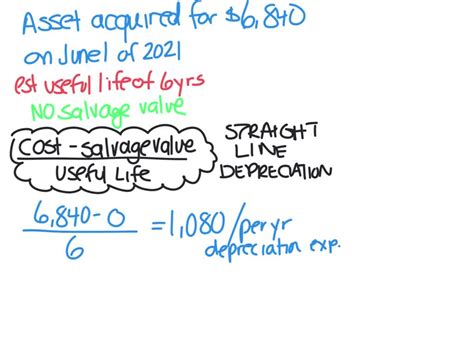 Asset acquired for $6,840
on June 1 of 2021
est useful life of 6yrs
NO salvage value
Cost - salvage value
Useful Life
STRAIGHT
LINE
DEPRECIATION
6,840-0
6
=1,080/per yr
depreciation exp.